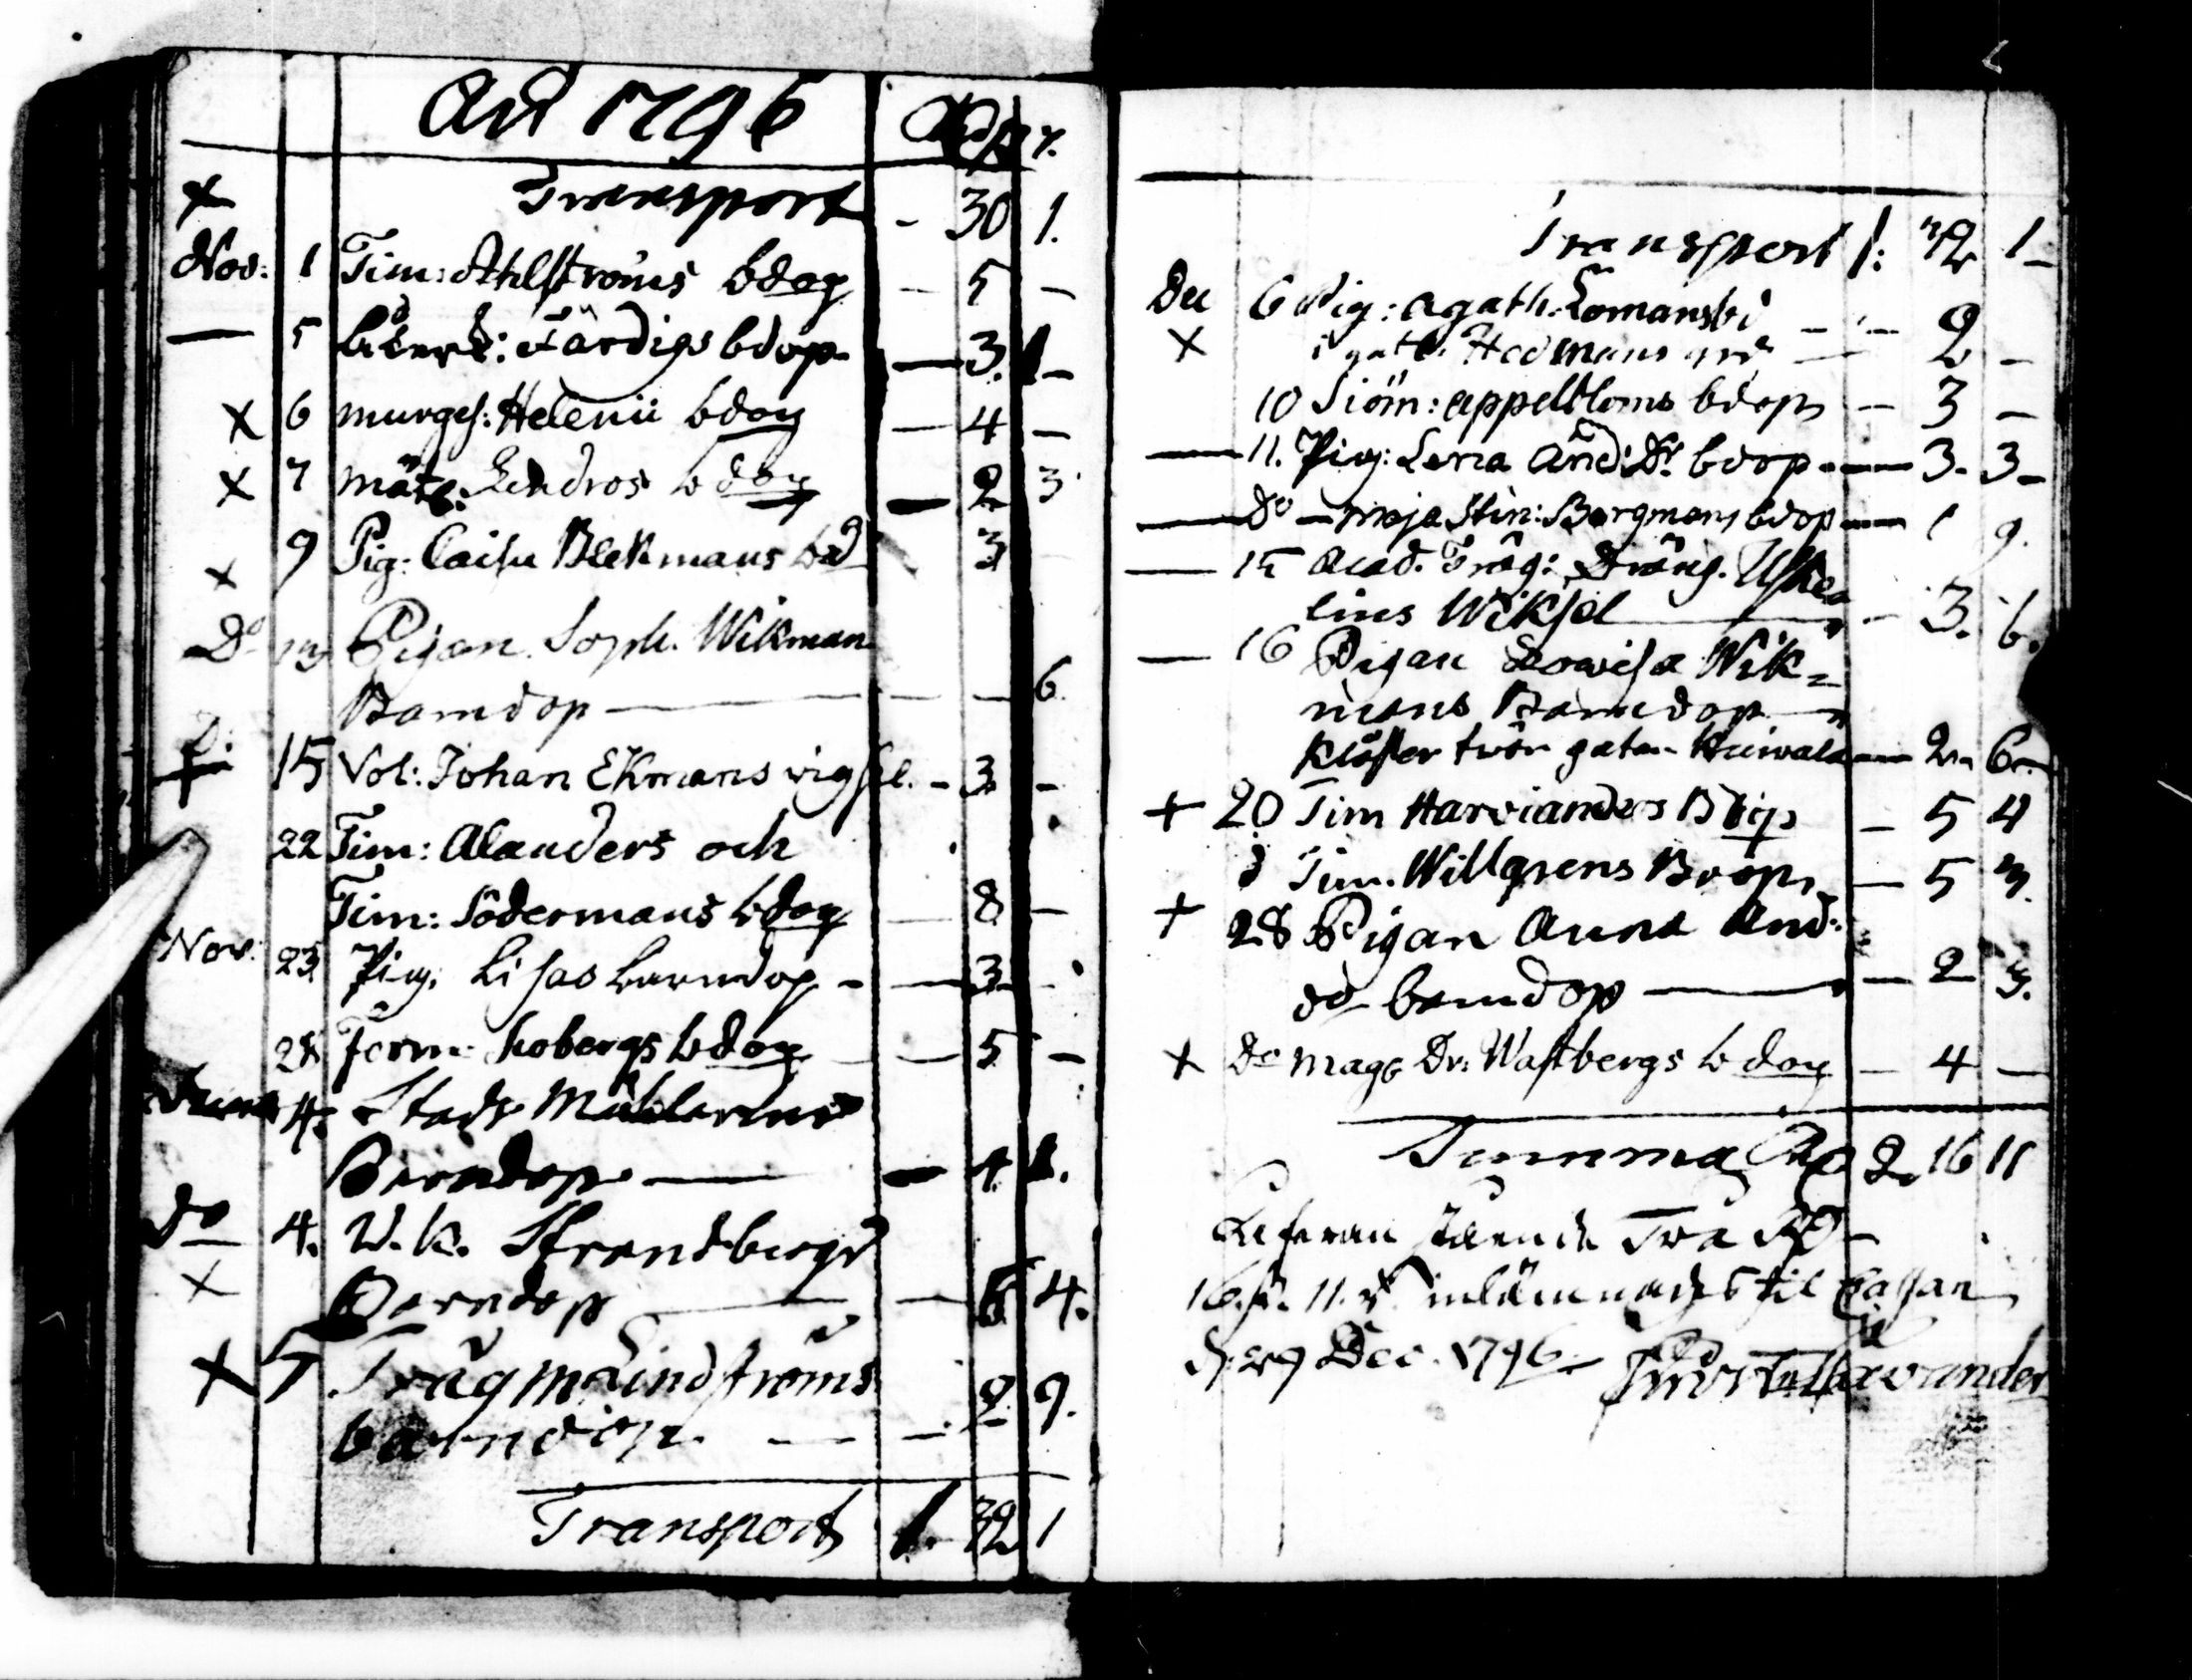 Ao 1796 Rd ß r.
x Transport - 30 1.
Nov: 1 Tim: Ahlströms bdop - 5 -
— 5 Färdigs bdop — 3. 1 -
x 6 murges: Helenii bdop — 4 —
x 7 mäst: Lindros bdop — 2 3
x 9 Pig: Caisa Blekmans bd 3
Do 13 Pigan. Soph. Wikman
Barndop — — — 6.
15 Vol: Johan Ekmans vigsel. - 3 -
22 Tim: Alanders och
Tim: Södermans bdop — 8 —
Nov: 23 Pig. Lisas barndop - — 3 -
28 hobergs bdop — 5 —
4. Stads
Barndop — — 4. 1.
do 4. V. k. Strandbergs
x Barndop — — 5 4.
x 5 Trägm Lindströms
barndop. — — 2. 9.
Transport 1. 42 1
Transport 1: 42 1 -
Dec 6 Pig: agath: Lomanski - - 2
x Hedmans — -
10 Siöm: appelbloms bdop — 3 —
— 11. Pig: Lena And: Dr bdop. — 3. 3 -
— do — maja Stin: Bergmans bdop — 1 9.
— 15 Acad. Träg: Dräng.
lius Wiksel — - 3. 6.
— 16 Pigan Lowisa Wik=
mans Barndop —
Klöster twär gatan — 2. 6.
+ 20 Tim Harvianders Bdop - 5 4
d Tim. Willgrens Bdop. — 5 3.
+ 28 Pigan Anna And:
dr barndop — — 2 3.
x Do Mag: Dr: Wastbergs bdop — 4 —
Summa Rd 2. 16 11
stående Två Rd -
16. ß. 11. r inlämnades til Cassan
d. 29 Dec. 1796.